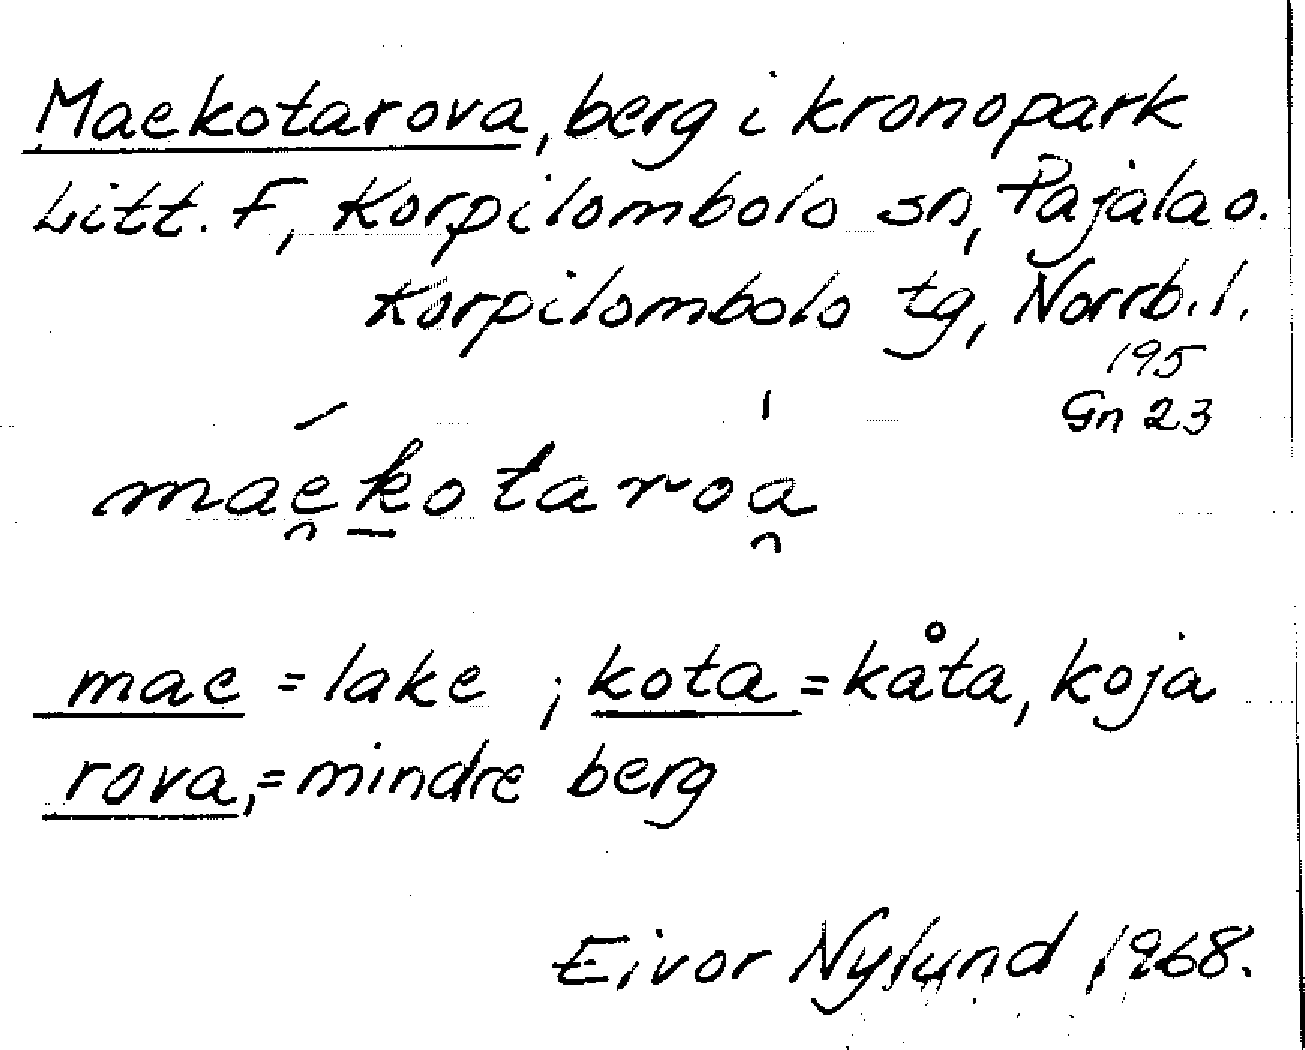 Maekotarova, berg i kronopark
Litt. F, Korpilombolo sn, Pajala o.
Korpilombolo tg, Norrb.l.
195
Gn 23
mae̯ḵotaroa̯
mae = lake ; kota = kåta, koja
rova, = mindre berg
Eivor Nylund 1968.